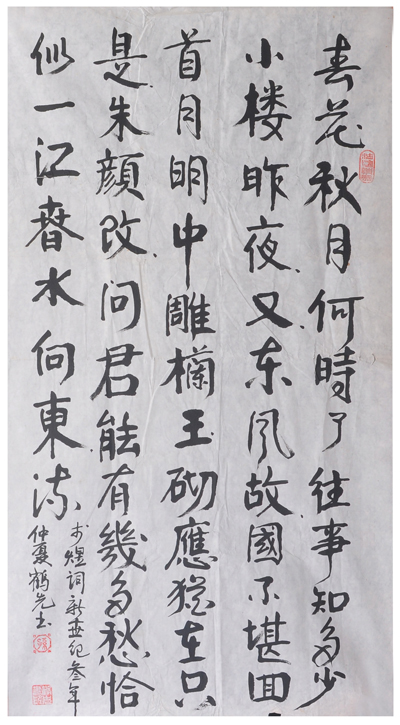 春花秋月何時了往事知多少
小楼昨夜又东风故國不堪回
首月明中雕欄玉砌應猶在只
是朱顔改问君能有幾多愁恰
似一江春水向東流
李煜词新世纪叁年
仲夏鹤先书